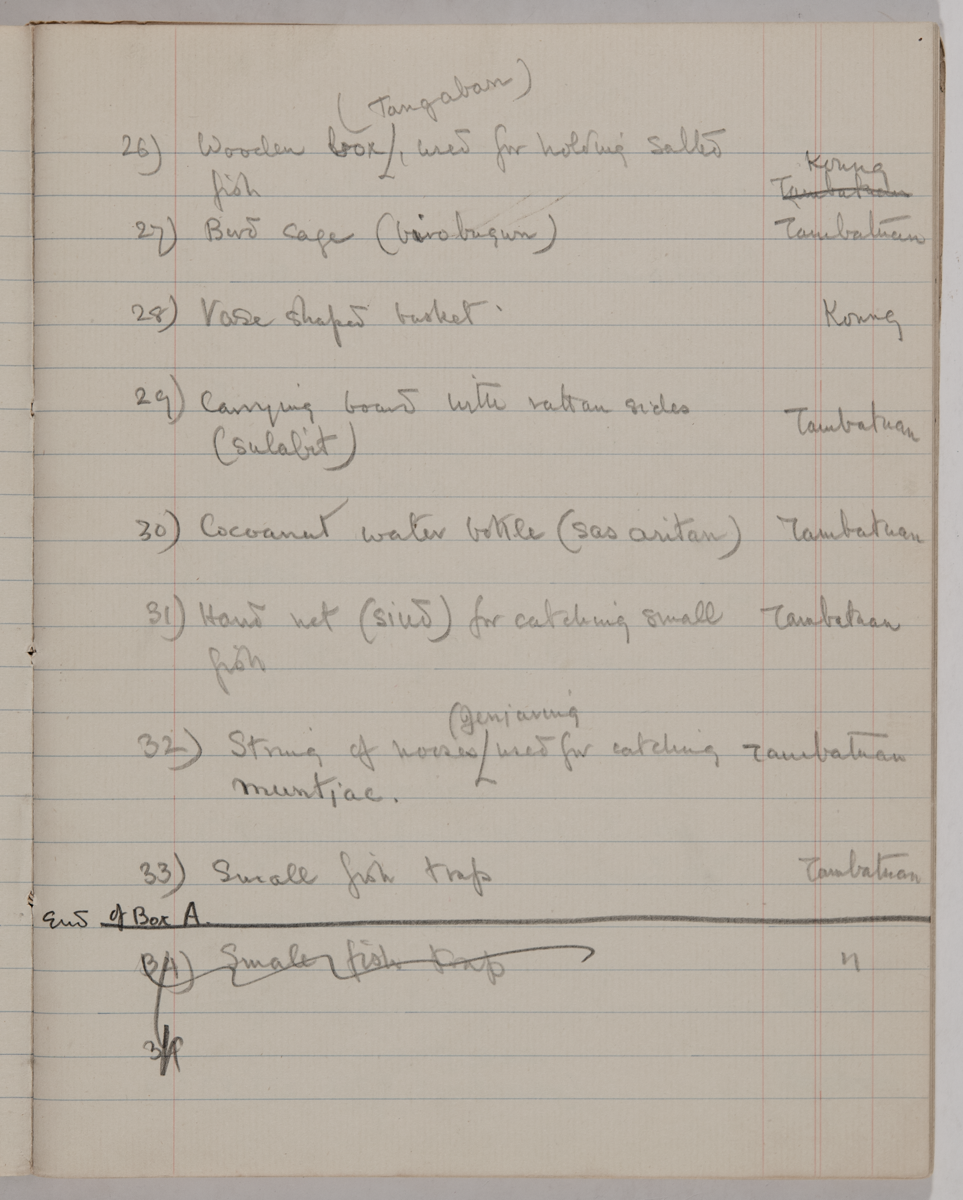 (Tangaban)
26) Wooden box, used for holding salted
fish Koung
Tambatuan
27) Bird cage (birobugun) Tambatuan
28) Vase shaped basket Koung
29) Carrying board with rattan sides
(sulabit) Tambatuan
30) Cocoanut water bottle (sas aritan) Tambatuan
31) Hand net (siud) for catching small Tambatuan
fish
(Genjaring
32) String of nooses used for catching Tambatuan
muntjac.
33) Small fish trap Tambatuan
End of Box A.
34) Smaler fish trap "
34